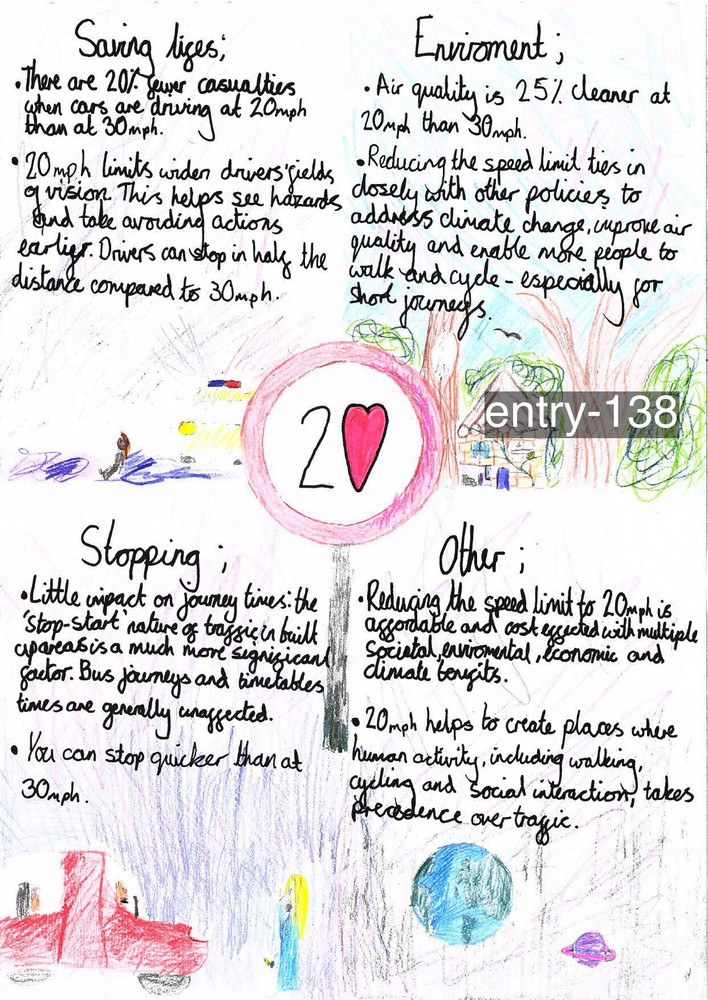 Saving lives;
• There are 20% fewer casualties
when cars are driving at 20mph
than at 30mph.
• 20mph limits widen drivers' fields
of vision. This helps see hazards
and take avoiding actions
earlier. Drivers can stop in half the
distance compared to 30mph.
Enviroment;
• Air quality is 25% cleaner at
20mph than 30mph.
• Reducing the speed limit ties in
closely with other policies to
address climate change, improve air
quality and enable more people to
walk and cycle - especially for
short journeys.
20
entry-138
Stopping;
• Little impact on journey times: the
'stop-start' nature of traffic in built
up areas is a much more significant
factor. Bus journeys and timetables
times are generally unaffected.
• You can stop quicker than at
30mph.
Other;
• Reducing the speed limit to 20mph is
affordable and cost effected with multiple
societal, enviromental, economic and
climate benifits.
• 20mph helps to create places where
human activity, including walking,
cycling and social interaction, takes
precedence over traffic.